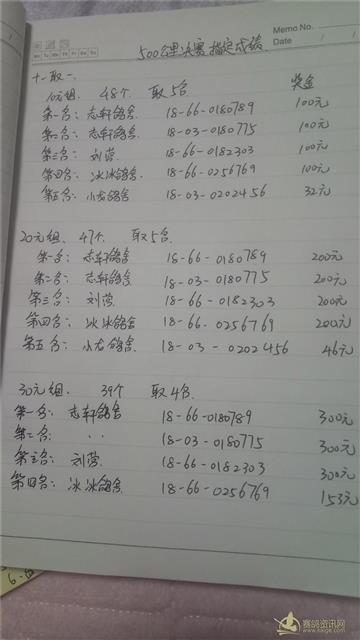 Memo No.
Mo Tu We Th Fr Sa Su
Date /
500公里决赛指定成绩
十一取一、 奖金
10元组、 48个、 取5名
第一名: 志轩鸽舍 18-66-0180789 100元
第二名: 志轩鸽舍 18-03-0180775 100元
第三名: 刘营 18-66-0182303 100元
第四名: 冰冰鸽舍 18-66-0256769 100元
第五名: 小龙鸽舍 18-03-0202456 32元
20元组、 47个、 取5名
第一名: 志轩鸽舍 18-66-0180789 200元
第二名: 志轩鸽舍 18-03-0180775 200元
第三名: 刘营 18-66-0182303 200元
第四名: 冰冰鸽舍 18-66-0256769 200元
第五名: 小龙鸽舍 18-03-0202456 46元
30元组、 39个 取4名
第一名: 志轩鸽舍 18-66-0180789 300元
第二名: 、、 18-03-0180775 300元
第三名: 刘营 18-66-0182303 300元
第四名: 冰冰鸽舍 18-66-0256769 153元
赛鸽资讯网